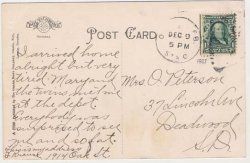 POST CARD
DEC 9
5 PM
1907
I arrived home
alright but very
tired. Mary and
the twins met me
at the depot.
Everybody was
surprised to see
me and so fat.
1914 Oak St.
Mrs O Peterson
37 Lincoln Ave
Deadwood
S.D.